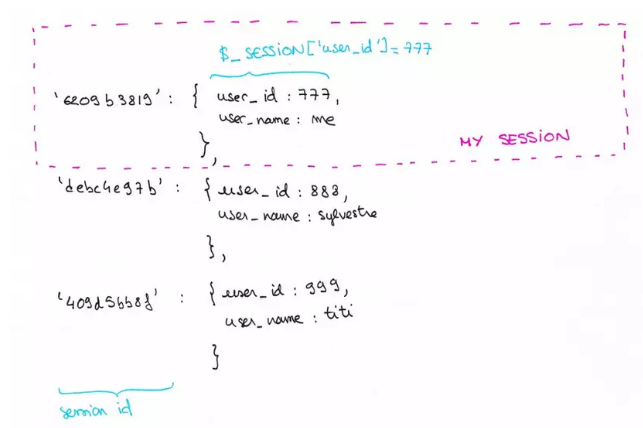 $_SESSION['user_id']=777
'6209b3819' : { user_id : 777,
user_name : me
},
MY SESSION
'debc4e97b' : { user_id : 888,
user_name : sylvestre
},
'409d5bb8f' : { user_id : 999,
user_name : titi
}
session id